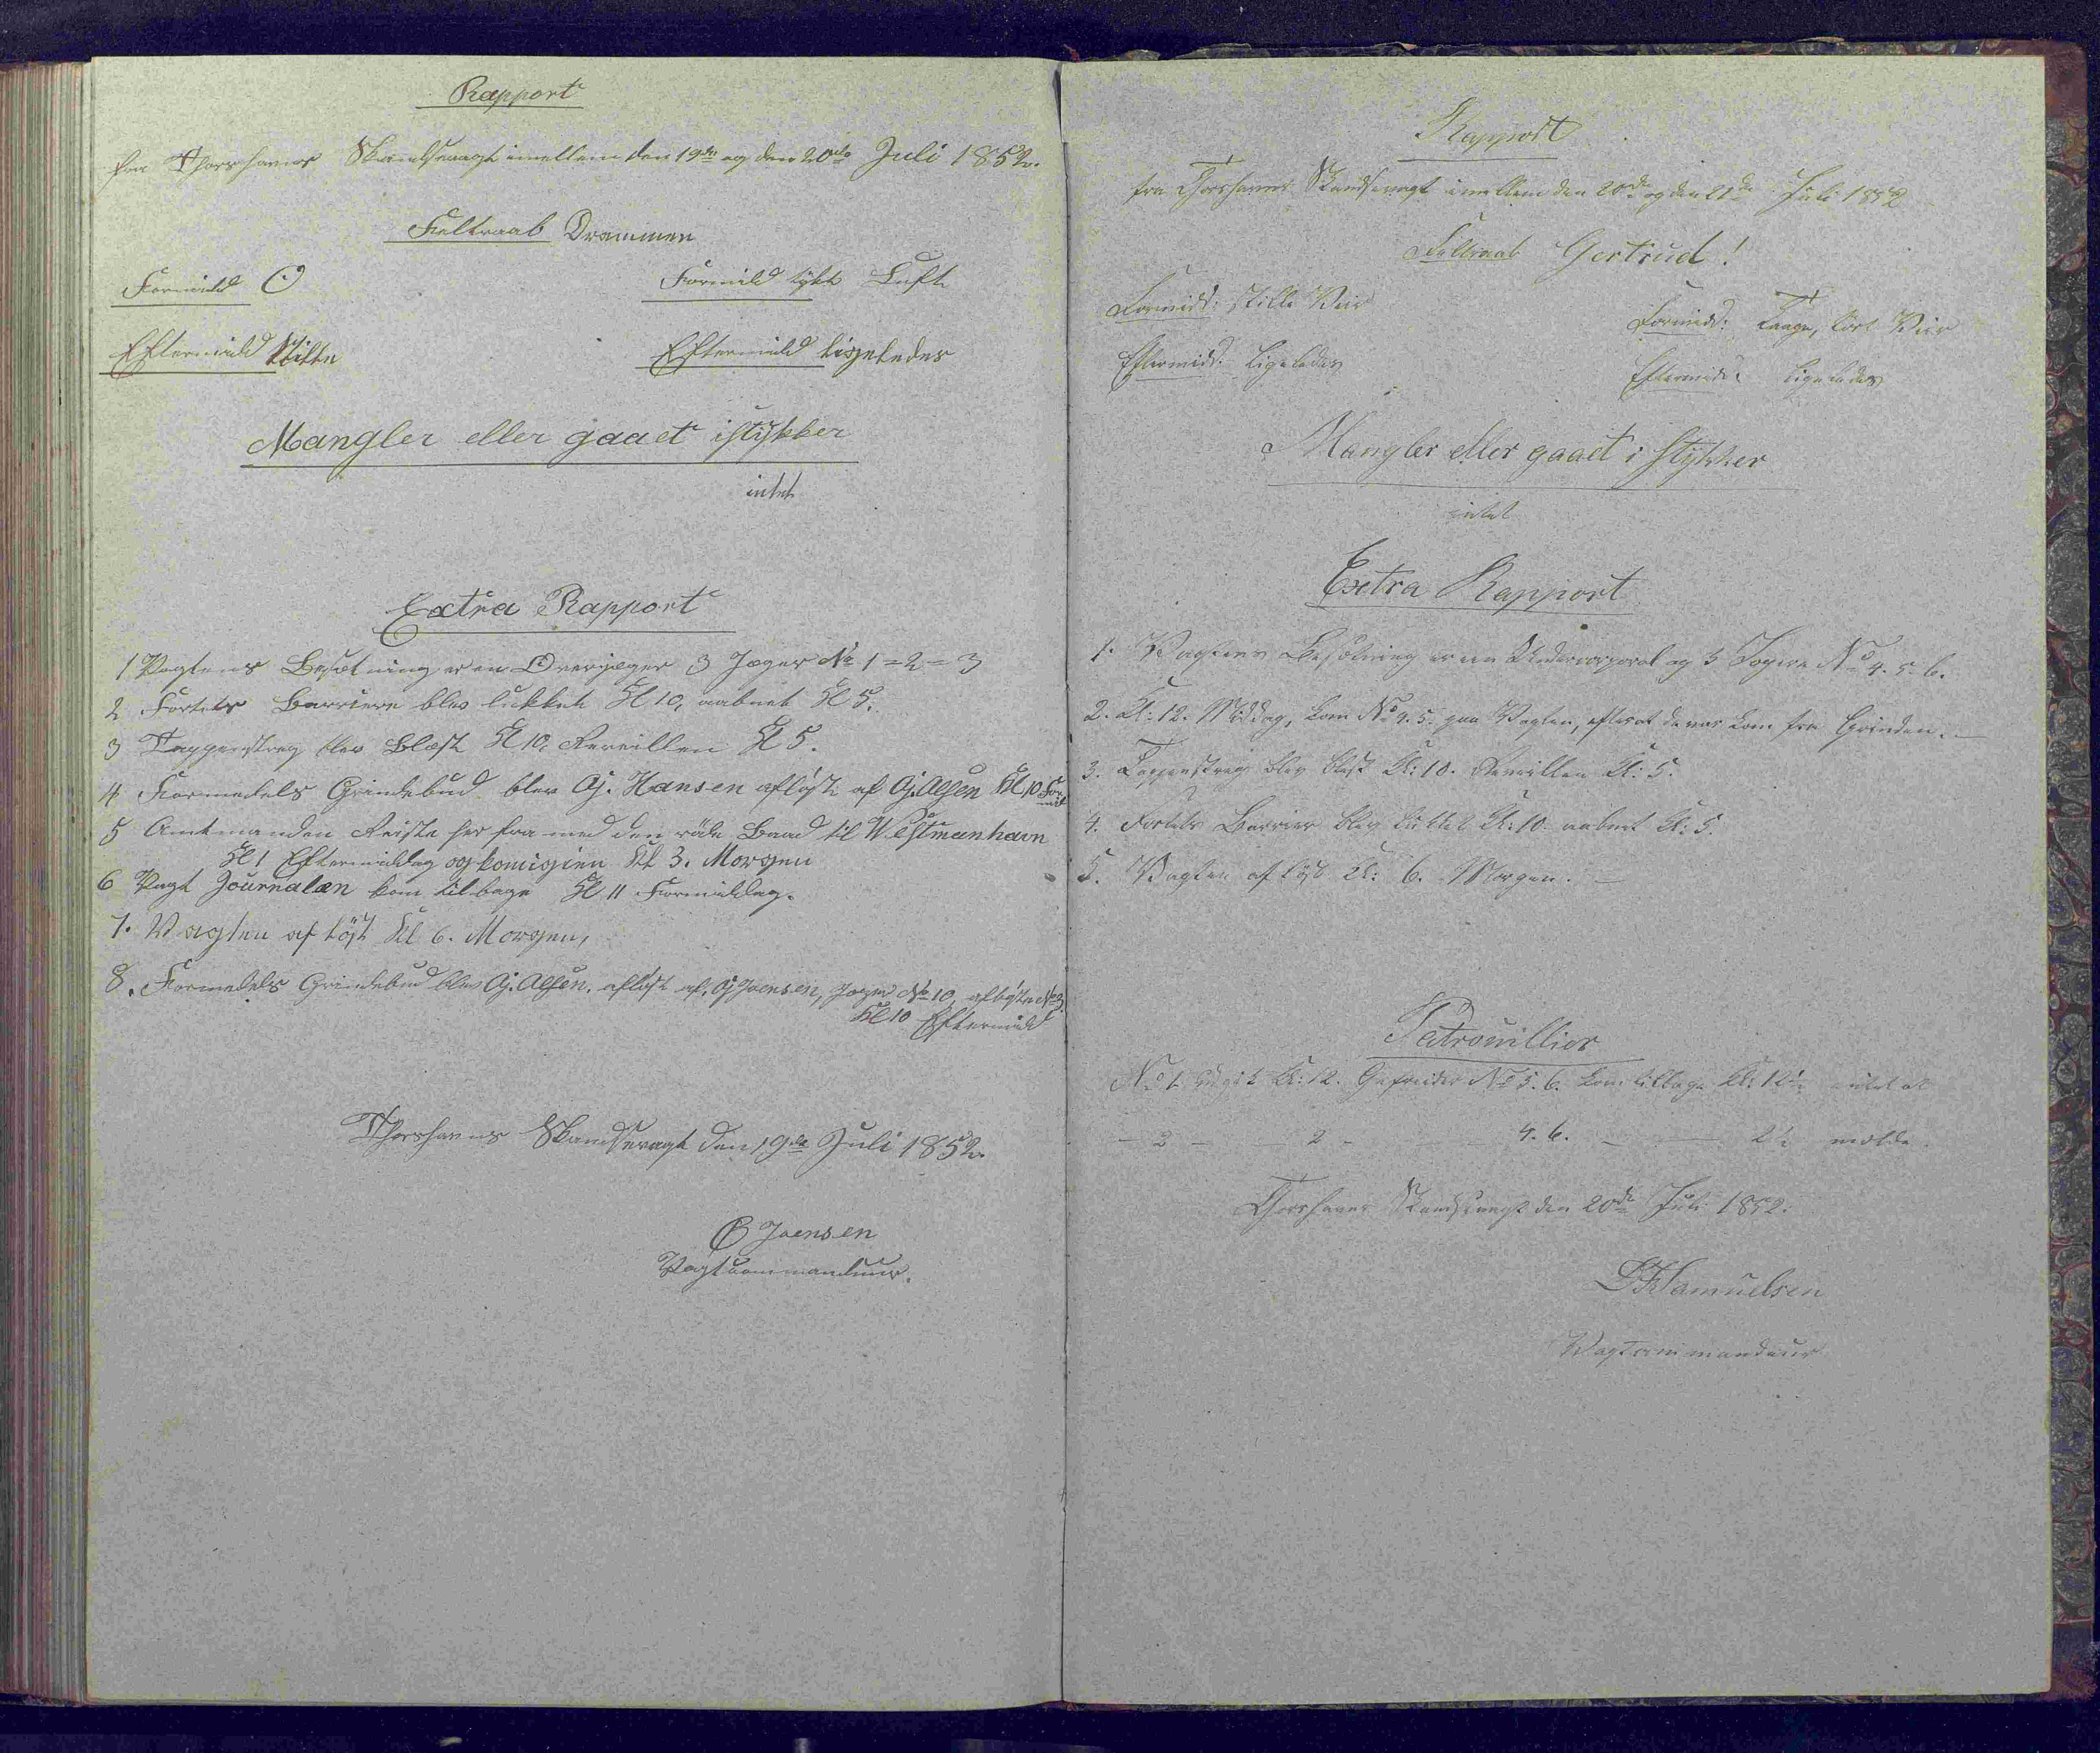 Rapport
fra Thorshavns Skandsevagt imellem den 19de og den 20de Juli 1852.
Feltraab Drammen
Formidd O
Formidd tykt Luft
Eftermidd Stille
Eftermidd ligeledes
Mangler eller gaaet istykker
intet
Extra Rapport
1 Vagtens Besætning er en Overjæger 3 Jæger No 1 = 2 = 3
2 Fortets Barriere blev lukket Kl 10, aabnet Kl 5.
3 Tappenstreg blev Blæst Kl 10, Reveillen Kl 5.
4 Formedels Grindebud blev Oj. Hansen afløst af Oj. Olsen Kl 10 For
mid
5 Amtmanden Reiste her fra med den röde Baad til Westmanhavn
Kl 1 Eftermiddag og kom igien Kl 3. Morgen
6 Vagt Journalen kom tilbage Kl 11 Formiddag.
7. Vagten af löst Kl 6. Morgen,
8. Formedels Grindebud blev Oj. Olsen, afløst af, Oj Joensen, Jæger No 10, afløste No 3
Kl 10 Eftermidd
Thorshavns Skandsevagt den 19de Juli 1852.
Joensen
Vagtcommandeur.
Rapport
fra Thorshavns Skandsevagt imellem den 20de og den 21de Juli 1852
Feltraab Gertrud!
Formidd: stille Veir
Formidd: Taage, Veir
Eftermidd: ligeledes
Eftermidd: ligeledes
Mangler eller gaaet i stykker
intet
Extra Rapport
1. Vagtens Besætning er en Undercorporal og 3 Jægere No 4. 5. 6.
2. Kl: 12. Middag, kom No 4. 5. paa Vagten, efter at de var kom fra Grinden. —
3. Tappenstreg blev blæst Kl: 10. Reveillen Kl: 5.
4. Fortets Barrier blev lukket Kl: 10. aabnet Kl: 5.
5. Vagten af löst Kl: 6. Morgen. —
Patrouillier
No 1. udgik Kl: 12. Gefreider No 5. 6. kom tilbage Kl: 12½ intet at
— 2 — — 2 — 4. 6. — — 2½ melde.
Thorshavns Skandsevagt den 20de Juli 1852.
Samuelsen
Vagtcommandeur